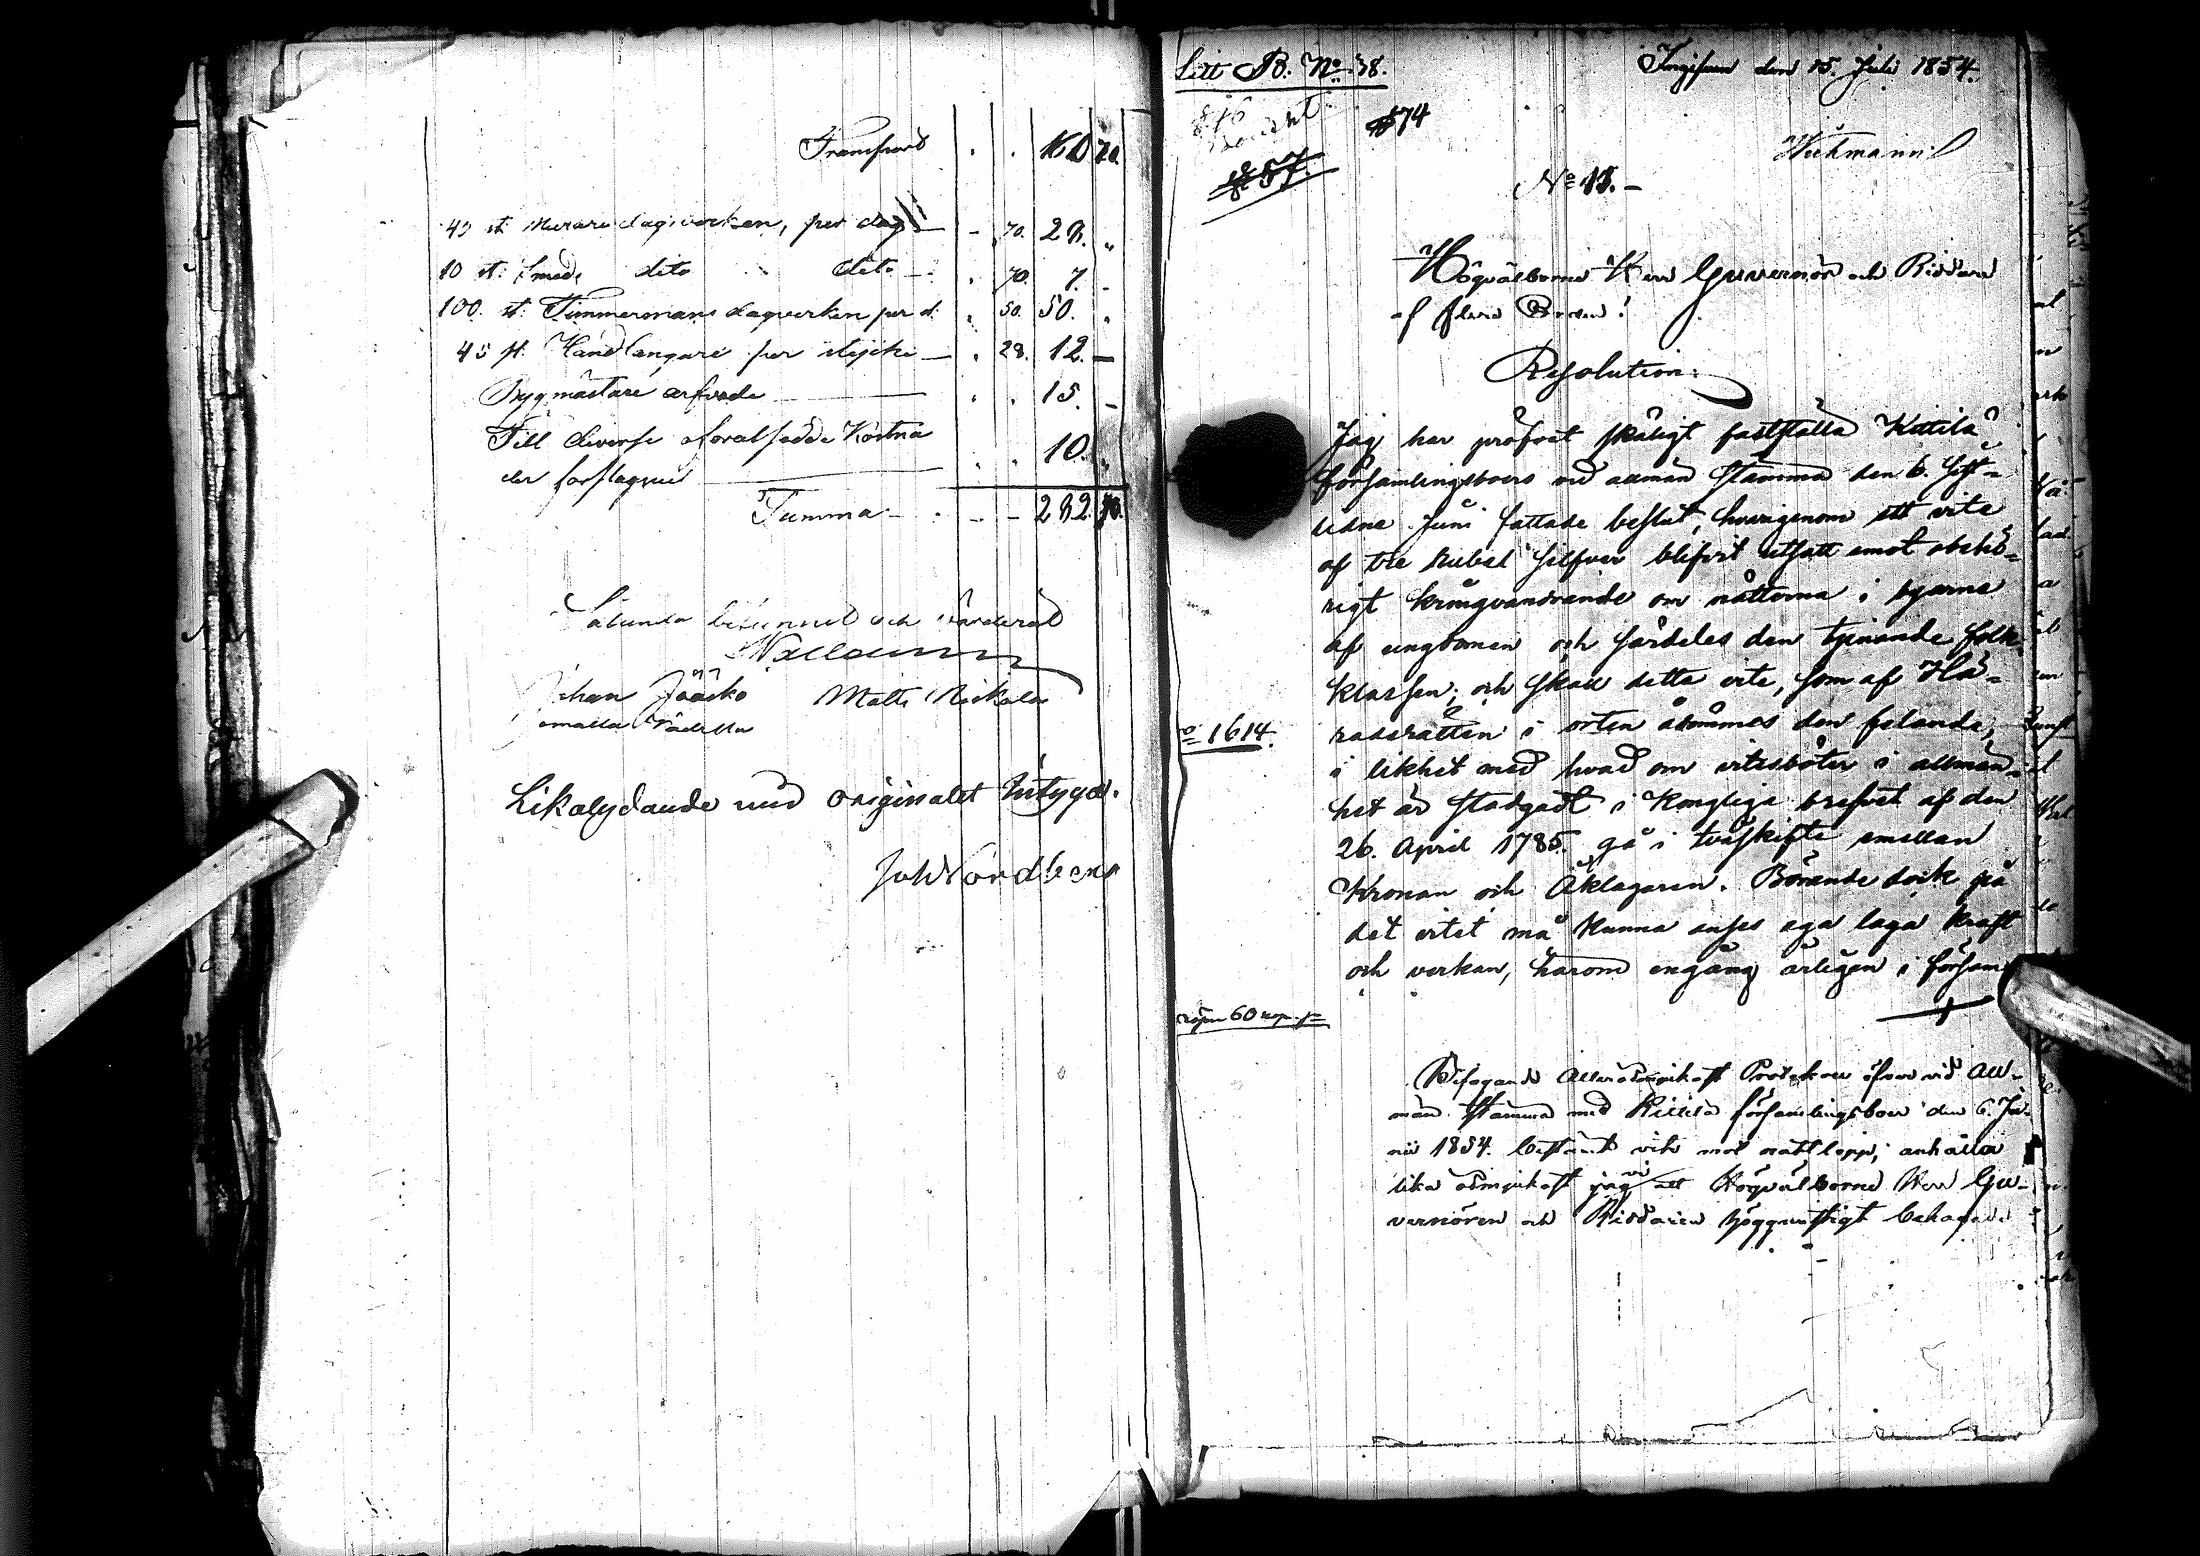 Transport . . 160 70
40 st. Murare dagsverken, per dag - 70. 28. "
10 st: Smeds dito dito - . 70. 7. -
100. st. Timmermans dagsverken per d: . 50. 50. "
45 st. Handtlangare per stycke - . 28. 12. -
Byggmästare arfvode . . 15. -
Till diverse oforutsedde Kostna
derforslagsvis . . 10. "
Summa - - 282. 70.
Sålunda besinnat och värderat
Johan Jääskö Matts Niskala
Likalydande med originalet betygar.
Joh Nordberg
Litt B. No 38.
den 15. Juli 1854.
§ 74
§ 57.
Wickmann
No 15. -
Högvälborne Herr Guvernör och Riddare
af flera Orden!
Resolution:
Jag har pröfvat skäligt fastställa Kittilä
församlingsboers vid allmän stämma den 6. sist-
lidne Juni fattade beslut, hvarigenom ett vite
af tre Rubel Silfver blifvit utsatt emot obehö-
rigt kringvandrande om nätterna i byarne
af ungdomen och särdeles den tjenande folk-
klassen; och skall detta vite, som af Hä-
radsrätten i orten ådömmes den felande,
No 1614.
i likhet med hvad om vitesböter i allmän-
het är stadgadt i Kongliga brefvet af den
26. April 1785. gå i tvåskifte emellan
Kronan och Åklagaren. Börande dock på
det vitet må kunna anses ega laga kraft
och verkan, härom engång årligen i försam
lösen 60 kop. s=
Bifogande Allerödmjukast Protokoll öfver vid All-
män Stämma med Kittilä församlingsboer den 6. Ju-
nii 1854. bestämt vite mot nattlopp, anhålla
vi
lika ödmjukast jag att Högvälborne Herr Gu-
vernören och Riddaren höggunstigt behagade